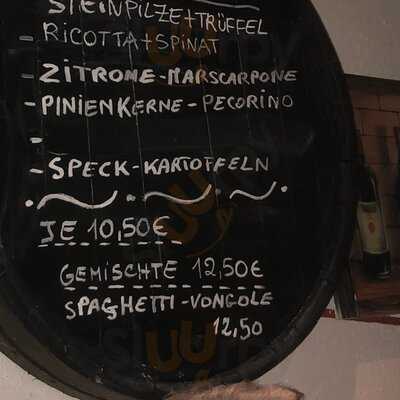 STEINPILZE+TRÜFFEL
- RICOTTA+SPINAT
- ZITRONE-MARSCARPONE
- PINIENKERNE - PECORINO
-
- SPECK-KARTOFFELN
JE 10,50€
GEMISCHTE 12,50€
SPAGHETTI-VONGOLE
12,50